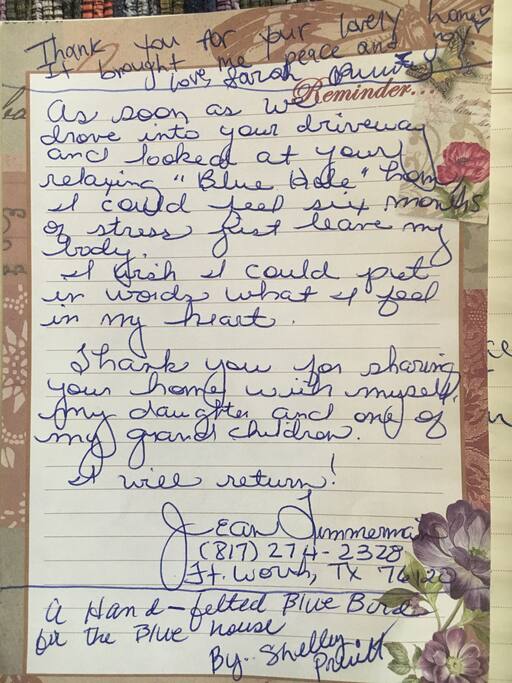 Thank you for your lovely home
It brought me peace and joy.
love, Sarah
Reminder...
As soon as we
drove into your driveway
and looked at your
relaxing "Blue Hole" home
I could feel six months
of stress just leave my
body.
I wish I could put
in words what I feel
in my heart.
Thank you for sharing
your home with myself,
my daughter and one of
my grandchildren.
I will return!
Jean Timmerman
(817) 274-2328
Ft. Worth, TX 76120
A Hand-felted Blue Bird
for the Blue house
By. Shelley
Pruitt